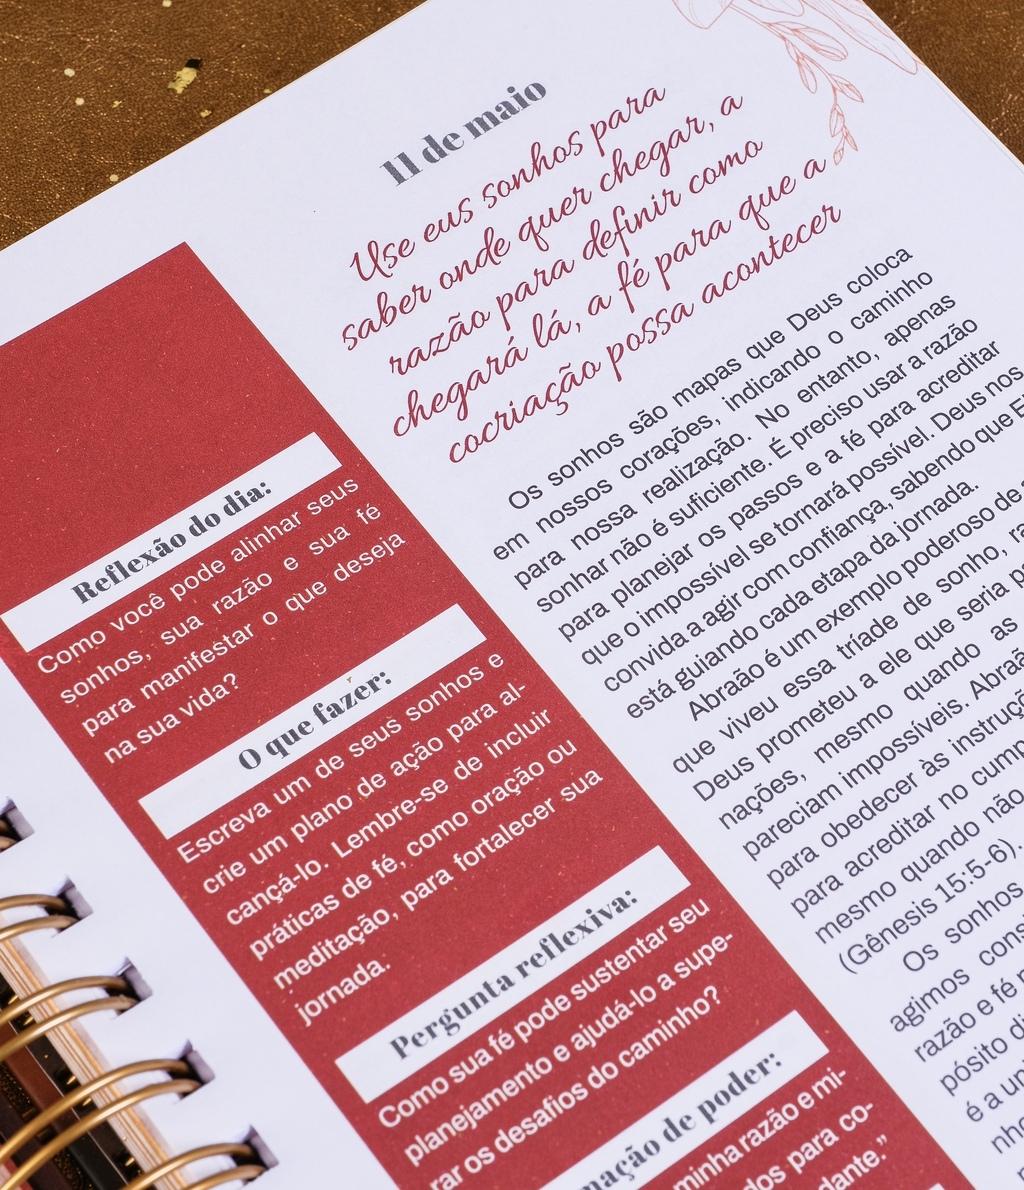 11 de maio
Use eus sonhos para
saber onde quer chegar, a
razão para definir como
chegará lá, a fé para que a
cocriação possa acontecer
Os sonhos são mapas que Deus coloca
em nossos corações, indicando o caminho
para nossa realização. No entanto, apenas
sonhar não é suficiente. É preciso usar a razão
para planejar os passos e a fé para acreditar
que o impossível se tornará possível. Deus nos
convida a agir com confiança, sabendo que
está guiando cada etapa da jornada.
Abraão é um exemplo poderoso de
que viveu essa tríade de sonho,
Deus prometeu a ele que seria
nações, mesmo quando as
pareciam impossíveis.
para obedecer às
para acreditar no
mesmo quando não
(Gênesis 15:5-6).
Os sonhos
agimos
razão e fé
pósito
é a
Reflexão do dia:
Como você pode alinhar seus
sonhos, sua razão e sua fé
para manifestar o que deseja
na sua vida?
O que fazer:
Escreva um de seus sonhos e
crie um plano de ação para al-
cançá-lo. Lembre-se de incluir
práticas de fé, como oração ou
meditação, para fortalecer sua
jornada.
Pergunta reflexiva:
Como sua fé pode sustentar seu
planejamento e ajudá-lo a supe-
rar os desafios do caminho?
de poder:
minha razão e mi-
para co-